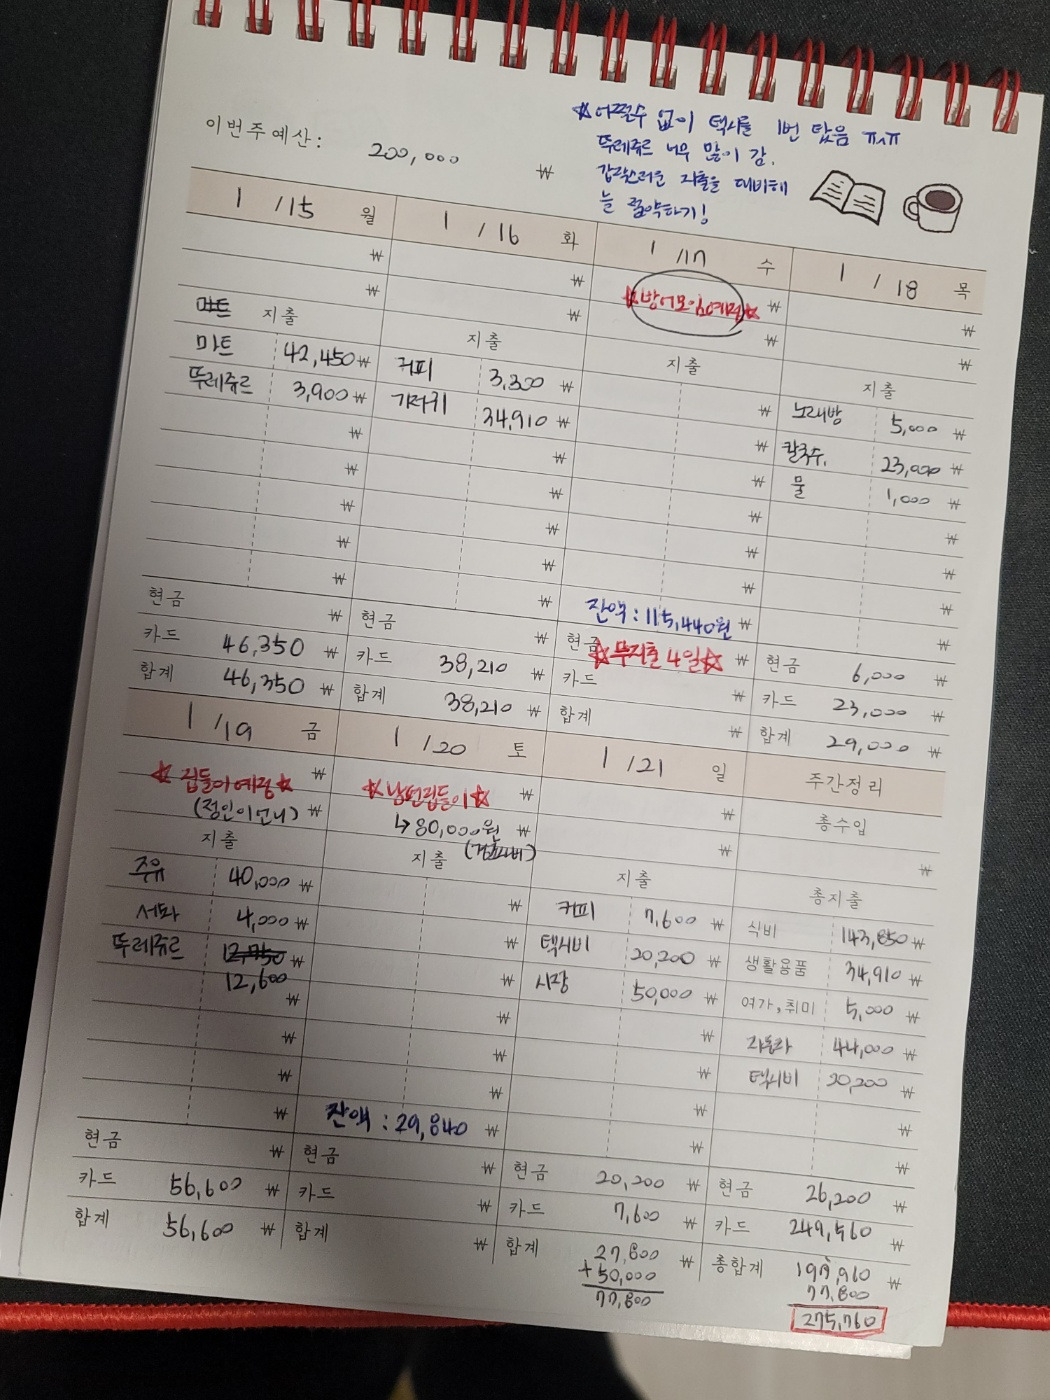 이번주예산: 200,000 ₩
☆어쩔수 없이 택시를 1번 탔음 ㅠㅅㅠ
뚜레쥬르 너무 많이 감.
갑작스러운 지출을 대비해
늘 절약하기!
1 /15 월
₩
₩
마트 지출
마트 42,450 ₩
뚜레쥬르 3,900 ₩
₩
₩
₩
₩
₩
현금 ₩
카드 46,350 ₩
합계 46,350 ₩
1 /16 화
₩
₩
지출
커피 3,300 ₩
기저귀 34,910 ₩
₩
₩
₩
₩
₩
현금 ₩
카드 38,210 ₩
합계 38,210 ₩
1 /17 수
☆방어모임예정☆ ₩
₩
지출
₩
₩
₩
₩
₩
₩
잔액 : 115,440원 ₩
현금 ☆무지출 4일☆ ₩
카드 ₩
합계 ₩
1 / 18 목
₩
₩
지출
노래방 5,000 ₩
칼국수. 23,000 ₩
물 1,000 ₩
₩
₩
₩
₩
현금 6,000 ₩
카드 23,000 ₩
합계 29,000 ₩
1 /19 금
☆집들이예정☆ ₩
(정인이언니) ₩
지출
주유 40,000 ₩
세차 4,000 ₩
뚜레쥬르 12,750 ₩
12,600 ₩
₩
₩
₩
현금 ₩
카드 56,600 ₩
합계 56,600 ₩
1 /20 토
☆남편집들이☆ ₩
↳80,000원 ₩
지출
₩
₩
₩
₩
₩
₩
잔액 : 29,840 ₩
현금 ₩
카드 ₩
합계 ₩
1 /21 일
₩
₩
지출
커피 7,600 ₩
택시비 20,200 ₩
시장 50,000 ₩
₩
₩
₩
₩
현금 20,200 ₩
카드 7,600 ₩
합계 27,800 ₩
+50,000
77,800
주간정리
총수입
₩
총지출
식비 143,850 ₩
생활용품 34,910 ₩
여가,취미 5,000 ₩
자동차 44,000 ₩
택시비 20,200 ₩
₩
₩
현금 26,200 ₩
카드 249,560 ₩
총합계 197,960 ₩
77,800
275,760